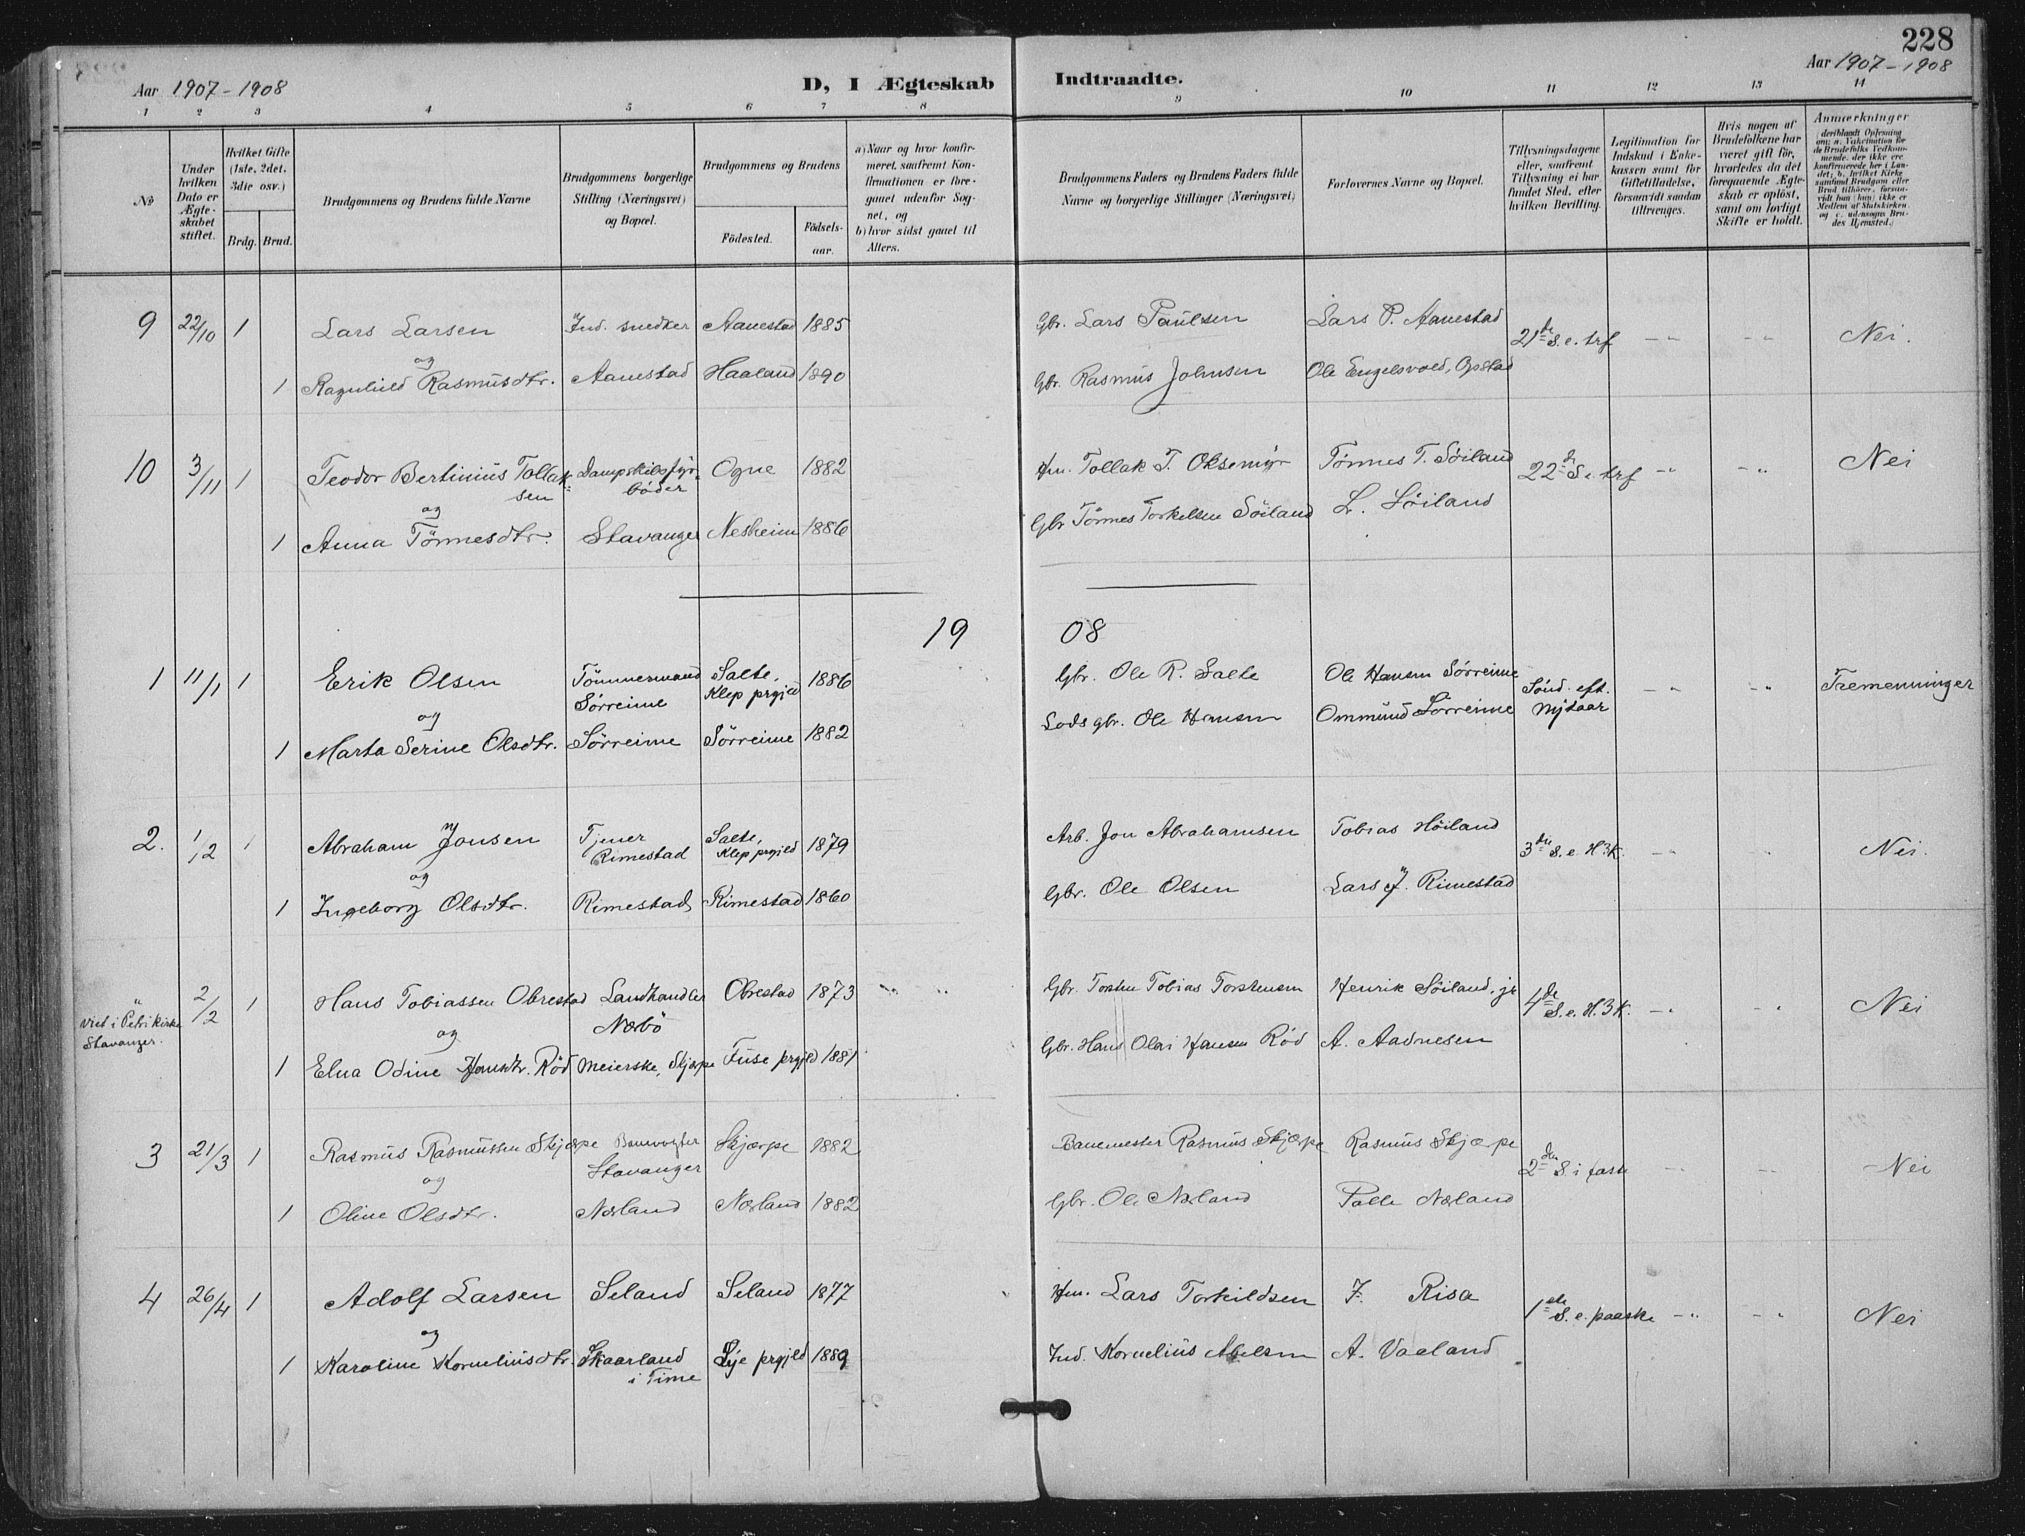 228
Aar 1907-1908
D, I Ægteskab
Indtraadte.
Aar 1907-1908
1 2 3 4 5 6 7 8 9 10 11 12 13 14
No
Under hvilken Dato er Ægteskabet stiftet.
Hvilket Gifte (1ste, 2det, 3die osv.)
Brdg. Brud.
Brudgommens og Brudens fulde Navne
Brudgommens borgerlige Stilling (Næringsvei) og Bopæl.
Brudgommens og Brudens
Fødested.
Fødselsaar.
a) Naar og hvor konfirmeret, saafremt Konfirmationen er foregaaet udenfor Sognet, og
b) hvor sidst gaaet til Alters.
Brudgommens Faders og Brudens Faders fulde Navne og borgerlige Stillinger (Næringsvei)
Forlovernes Navne og Bopæl.
Tillysningsdagene eller, saafremt Tillysning ei har fundet Sted, efter hvilken Bevilling.
Legitimation for Indskud i Enkekassen samt for Giftetilladelse, forsaavidt saadan tiltrænges.
Hvis nogen af Brudefolkene har været gift før, hvorledes da det foregaaende Ægteskab er opløst, samt om lovligt Skifte er holdt.
Anmærkninger
9 22/10 1 Lars Larsen Ind. snedker Aanestad 1885 Gbr. Lars Paulsen Lars P. Aanestad 21de S. e. trf -"- -"- Nei.
og
1 Ragnhild Rasmusdtr. Aanestad Haaland 1890 Gbr. Rasmus Johnsen Ole Engelsvold, Opstad
10 3/11 1 Teodor Bertinius Tollaksen Dampskibsfyrbøder Ogne 1882 Hm. Tollak T. Oksemyr Tønnes T. Søiland 22d S. e. trf -"- -"- Nei
og
1 Anna Tønnesdtr. Stavanger Nesheim 1886 Gbr Tønnes Torkelsen Söiland L. Söiland
19 08
1 11/1 1 Erik Olsen Tömmermand Sörreime Salte, Klep prgjeld 1886 Gbr. Ole R. Salte Ole Hansen Sörreime Sönd. eft. nytaar -"- -"- Tremenninger
og
1 Marta Serine Olsdtr. Sörreime Sörreime 1882 Lods gbr. Ole Hansen Ommund Sörreime
2. 1/2 1 Abraham Jonsen Tjener Rimestad Salte, Klep prgjeld 1879 Arb. Jon Abrahamsen Tobias Höiland 3die S. e. H3K. -"- -"- Nei.
og
1 Ingeborg Olsdtr. Rimestad Rimestad 1860 Gbr. Ole Olsen Lars J. Rimestad
viet i Petri kirke Stavanger. 2/2 1 Hans Tobiassen Obrestad Landhandler Nærbö Obrestad 1873 Gbr. Torsten Tobias Torstensen Henrik Söiland, jr 4de S. e. H. 3K. -"- -"- Nei
og
1 Elna Odine Hansdtr. Röd Meierske, Skjærpe Fuse prgjeld 1881 Gbr. Hans Olai Hansen Röd A. Aadnesen
3 21/3 1 Rasmus Rasmussen Skjærpe Banevogter Stavanger Skjærpe 1882 Banemester Rasmus Skjærpe Rasmus Skjærpe 2den S i faste -"- -"- Nei
og
1 Oline Olsdtr. Nærland Nærland 1882 Gbr. Ole Nærland Palle Nærland
4 26/4 1 Adolf Larsen Seland Seland 1877 Hm. Lars Torkildsen F. Risa 1ste S. e. paaske -"- -"- Nei
og
1 Karoline Korneliusdtr. Skaarland i Time Lye prgjeld 1889 Ind. Kornelius Abelsen A. Vaaland